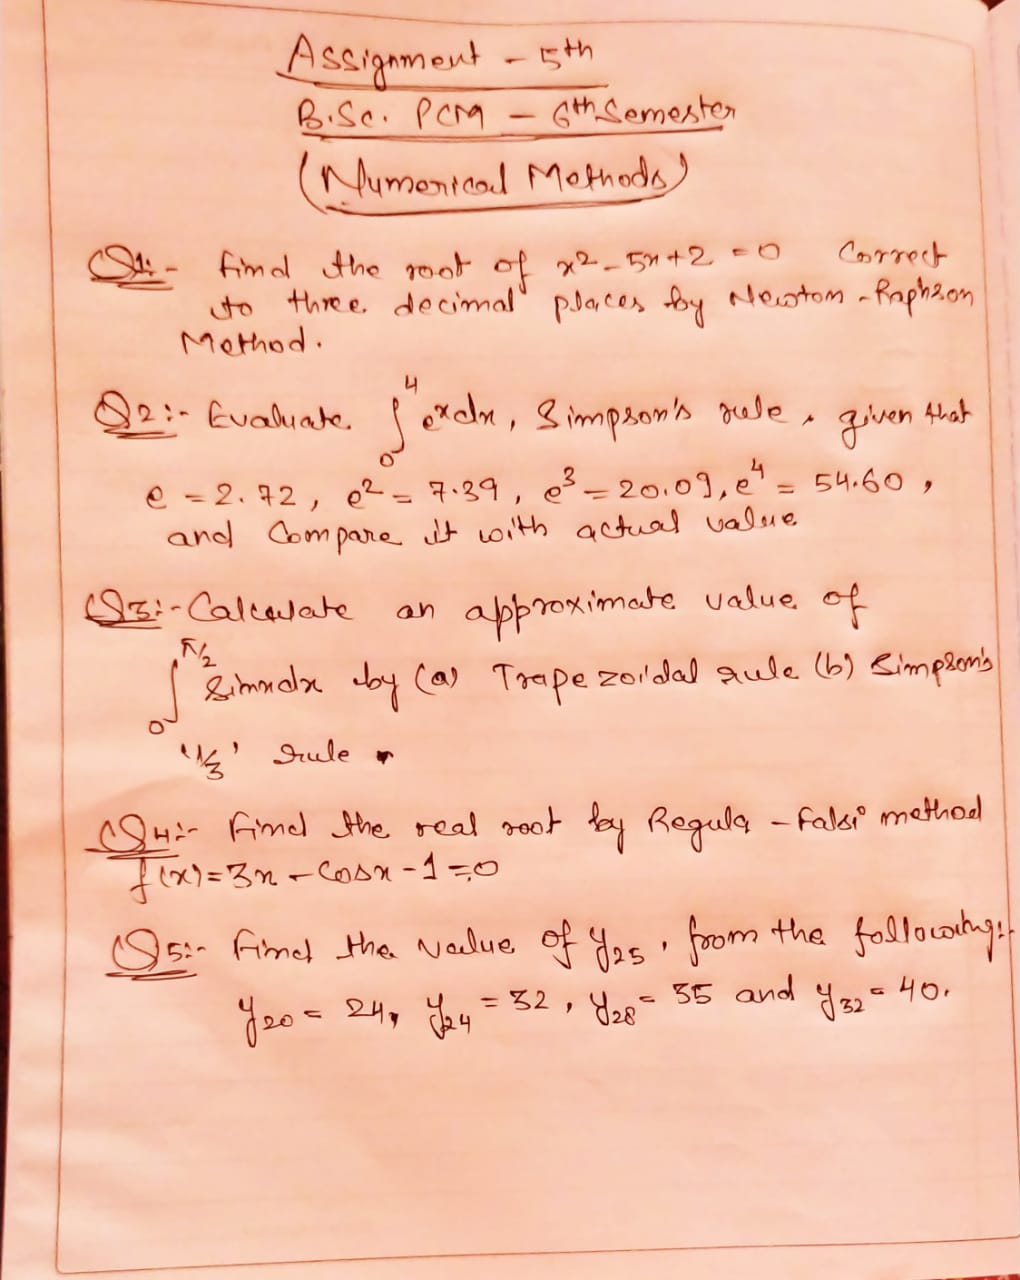 Assignment - 5th
B.Sc. PCM - 6th Semester
(Numerical Methods)
Q1:- Find the root of x² - 5x + 2 = 0 Correct
to three decimal places by Newton - Raphson
Method.
Q2:- Evaluate ∫₀⁴ eˣdx, Simpson's rule, given that
e = 2.72, e² = 7.39, e³ = 20.09, e⁴ = 54.60,
and Compare it with actual value
Q3:- Calculate an approximate value of
∫₀^π/2 Sinxdx by (a) Trapezoidal rule (b) Simpson's
'1/3' rule.
Q4:- Find the real root by Regula - falsi method
f(x) = 3x - Cosx - 1 = 0
Q5:- Find the value of y₂₅, from the following:-
y₂₀ = 24, y₂₄ = 32, y₂₈ = 35 and y₃₂ = 40.